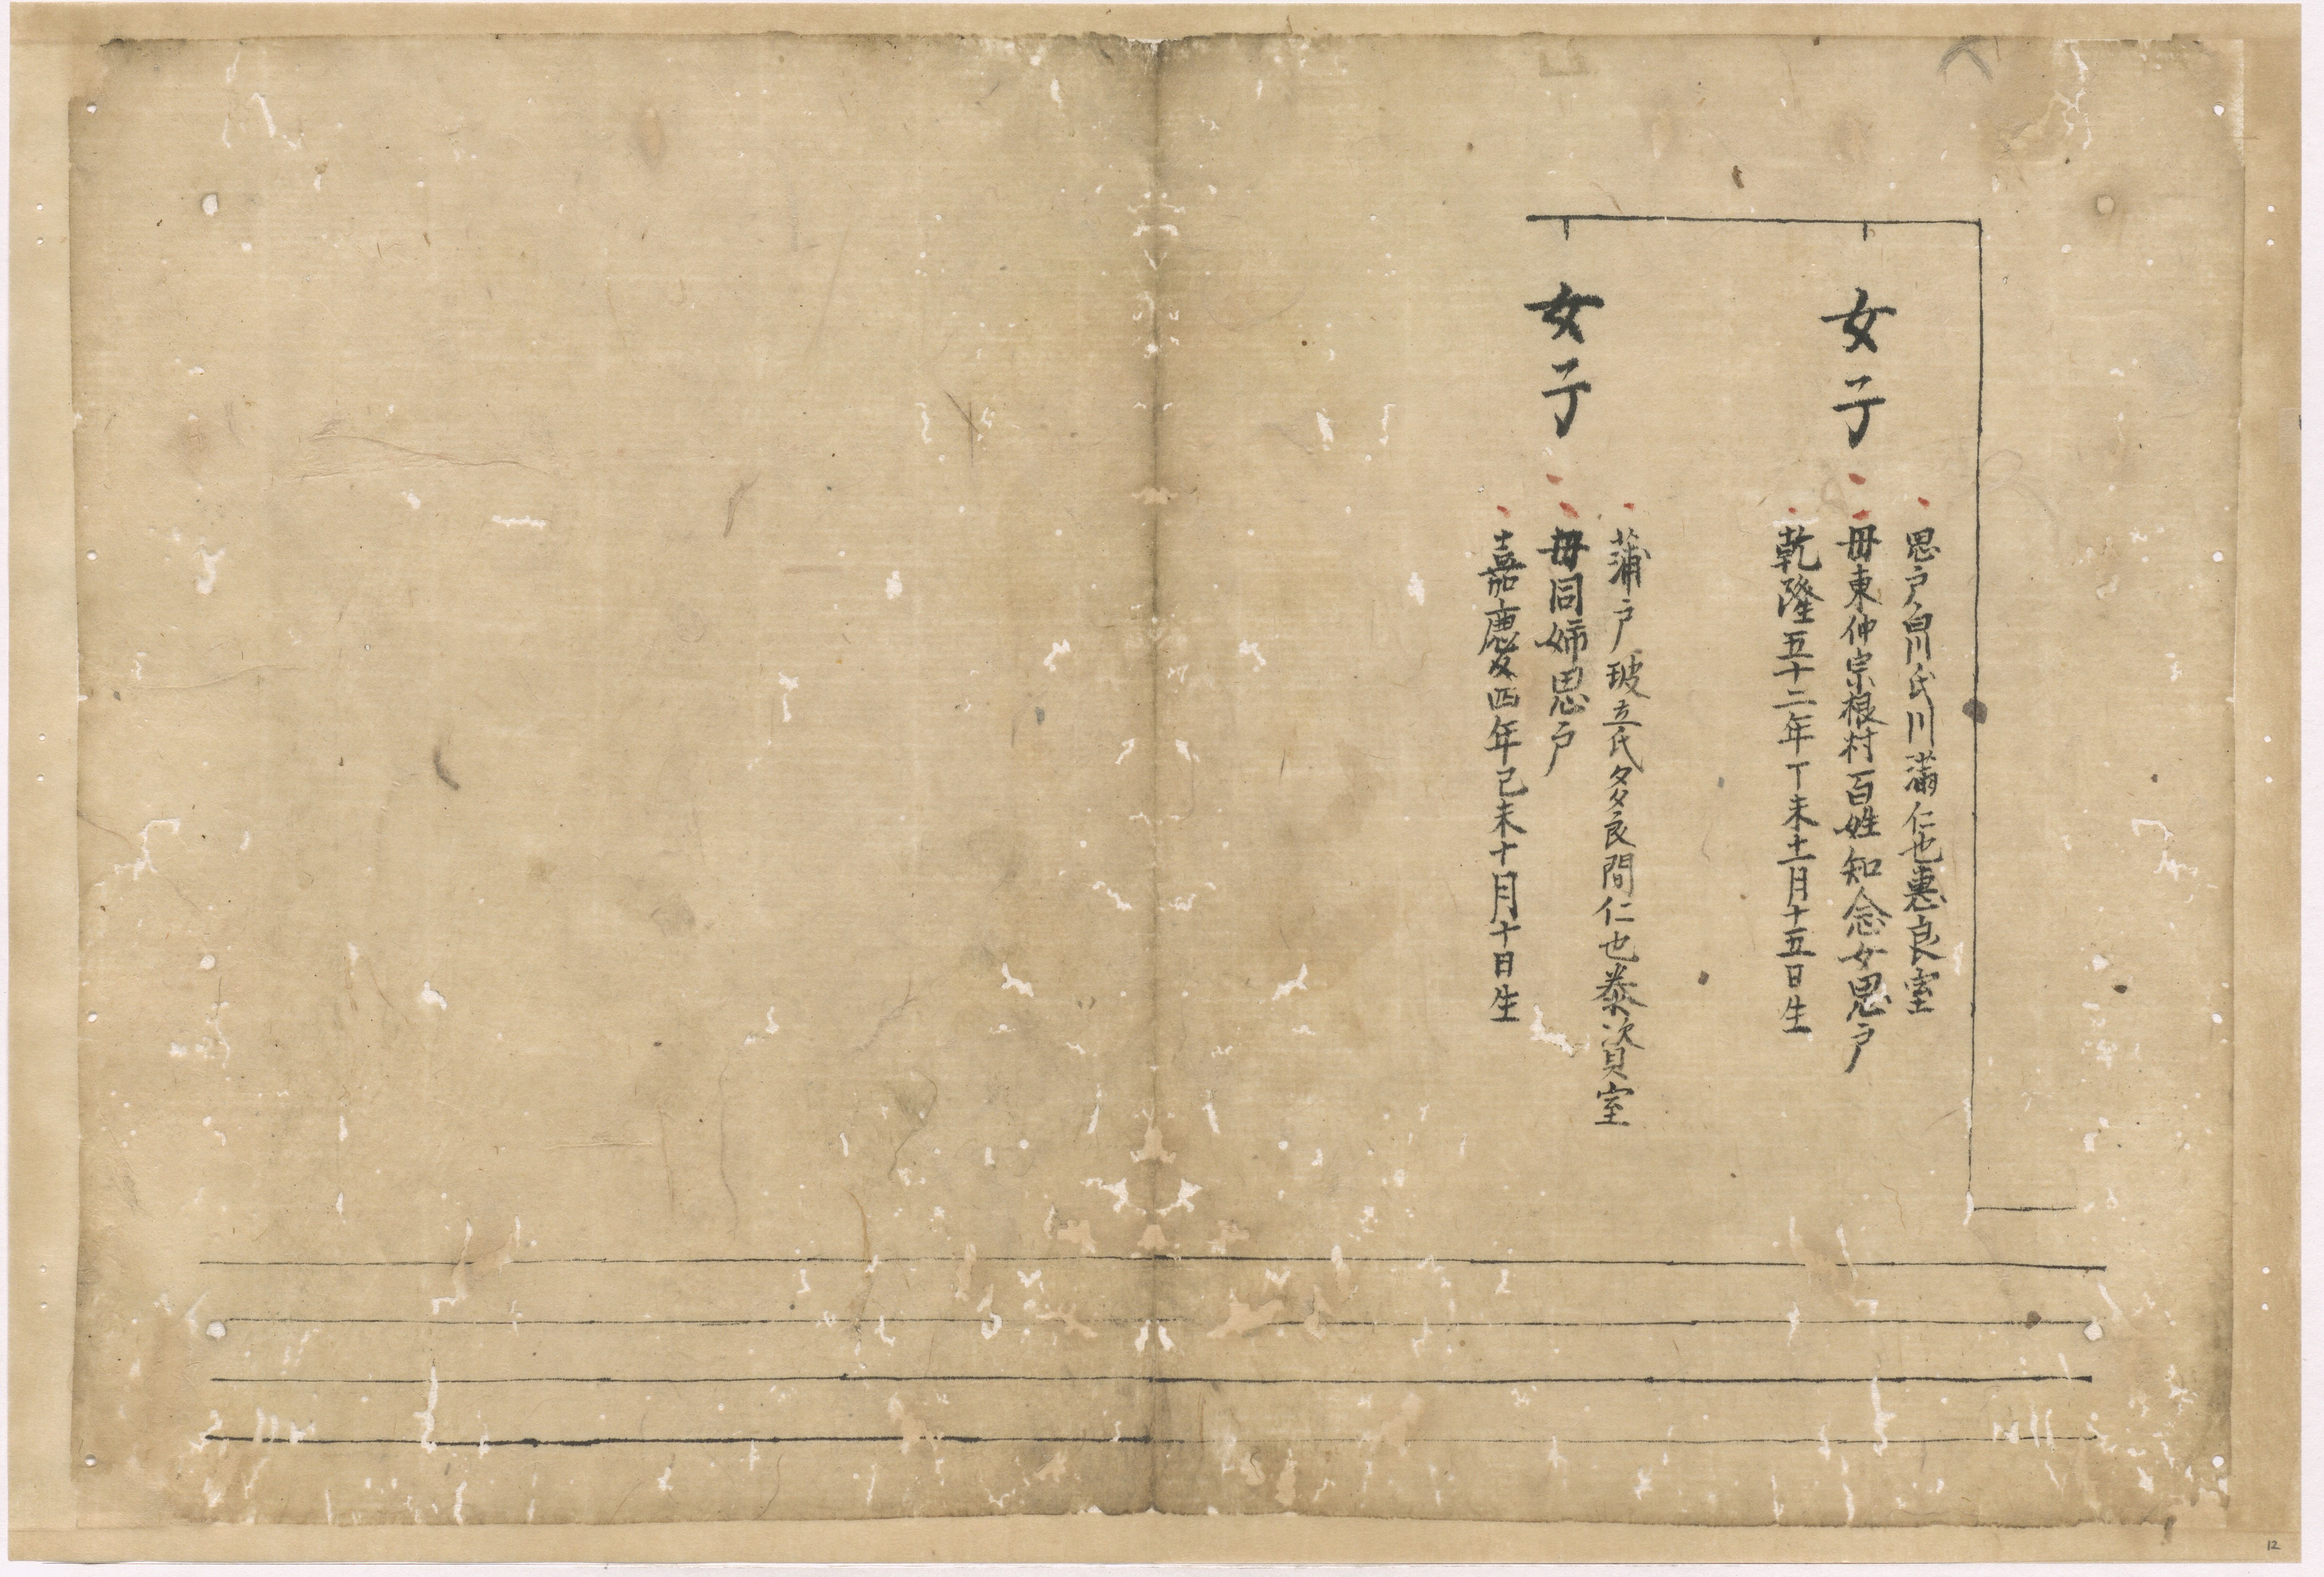 女子
思戸白川氏川滿仁也惠良室
毋東仲宗根村百姓知念女思戸
乾隆五十二年丁未十一月十五日生
女子
蒲戸 玻立氏多良間仁也泰資室
毋同姉思戸
嘉慶四年己未十月十日生
12